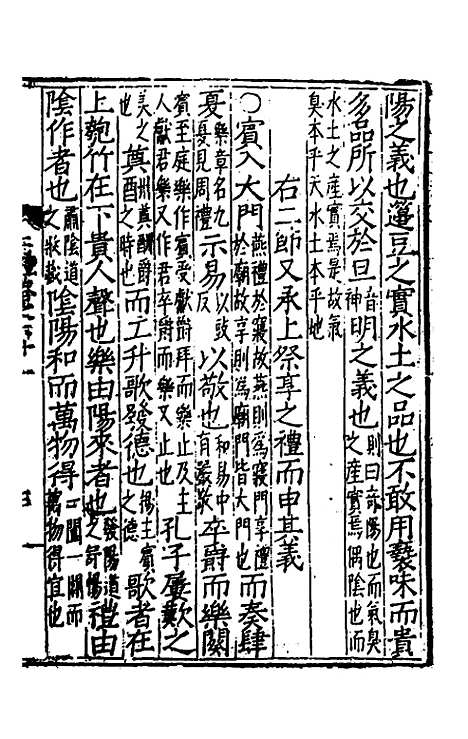 陽之義也籩豆之實水土之品也不敢用褻味而貴
多品所以交於旦音神明之義也則曰奇陽也而氣臭之產實焉偶陰也而
水土之產實焉是故氣臭本乎天水土本乎地
右二節又承上祭享之禮而申其義
○賓入大門燕禮於寢故燕則為寢門享禮於廟故享則為廟門皆大門也而奏肆
夏樂章名九夏見周禮示易以豉反以敬也和易中有嚴敬卒爵而樂闋
賓至庭樂作賓受獻爵拜而樂止及主人獻君樂又作君卒爵而樂又止也孔子屢歎之
美之也奠奠酬爵之時也而工升歌發德也揚主賓之德歌者在
上匏竹在下貴人聲也樂由陽來者也發陽道之舒暢禮由
陰作者也肅陰道之收歛陰陽和而萬物得一闔一闢而萬物得宜也